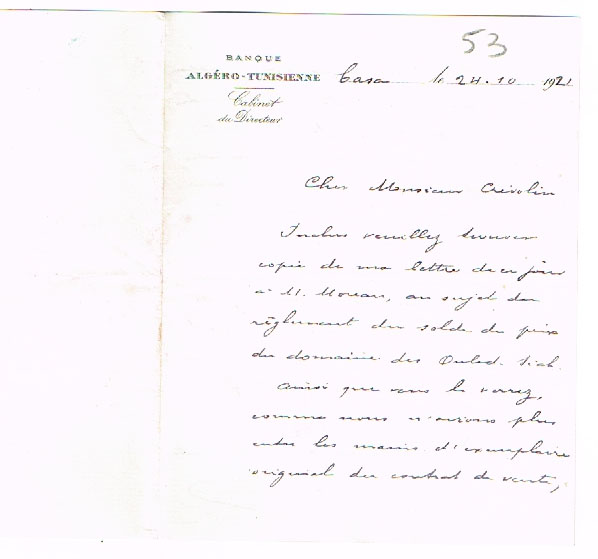 53
BANQUE
ALGÉRO-TUNISIENNE
Cabinet
du Directeur
Casa le 24.10 1921
Cher Monsieur Crévolin
Inclus veuillez trouver
copie de ma lettre de ce jour
à M. Moreau, au sujet du
règlement du solde du prix
du domaine des Ouled
Ainsi que vous le verrez,
comme nous n'avions plus
entre les mains d'exemplaire
original du contrat de vente,